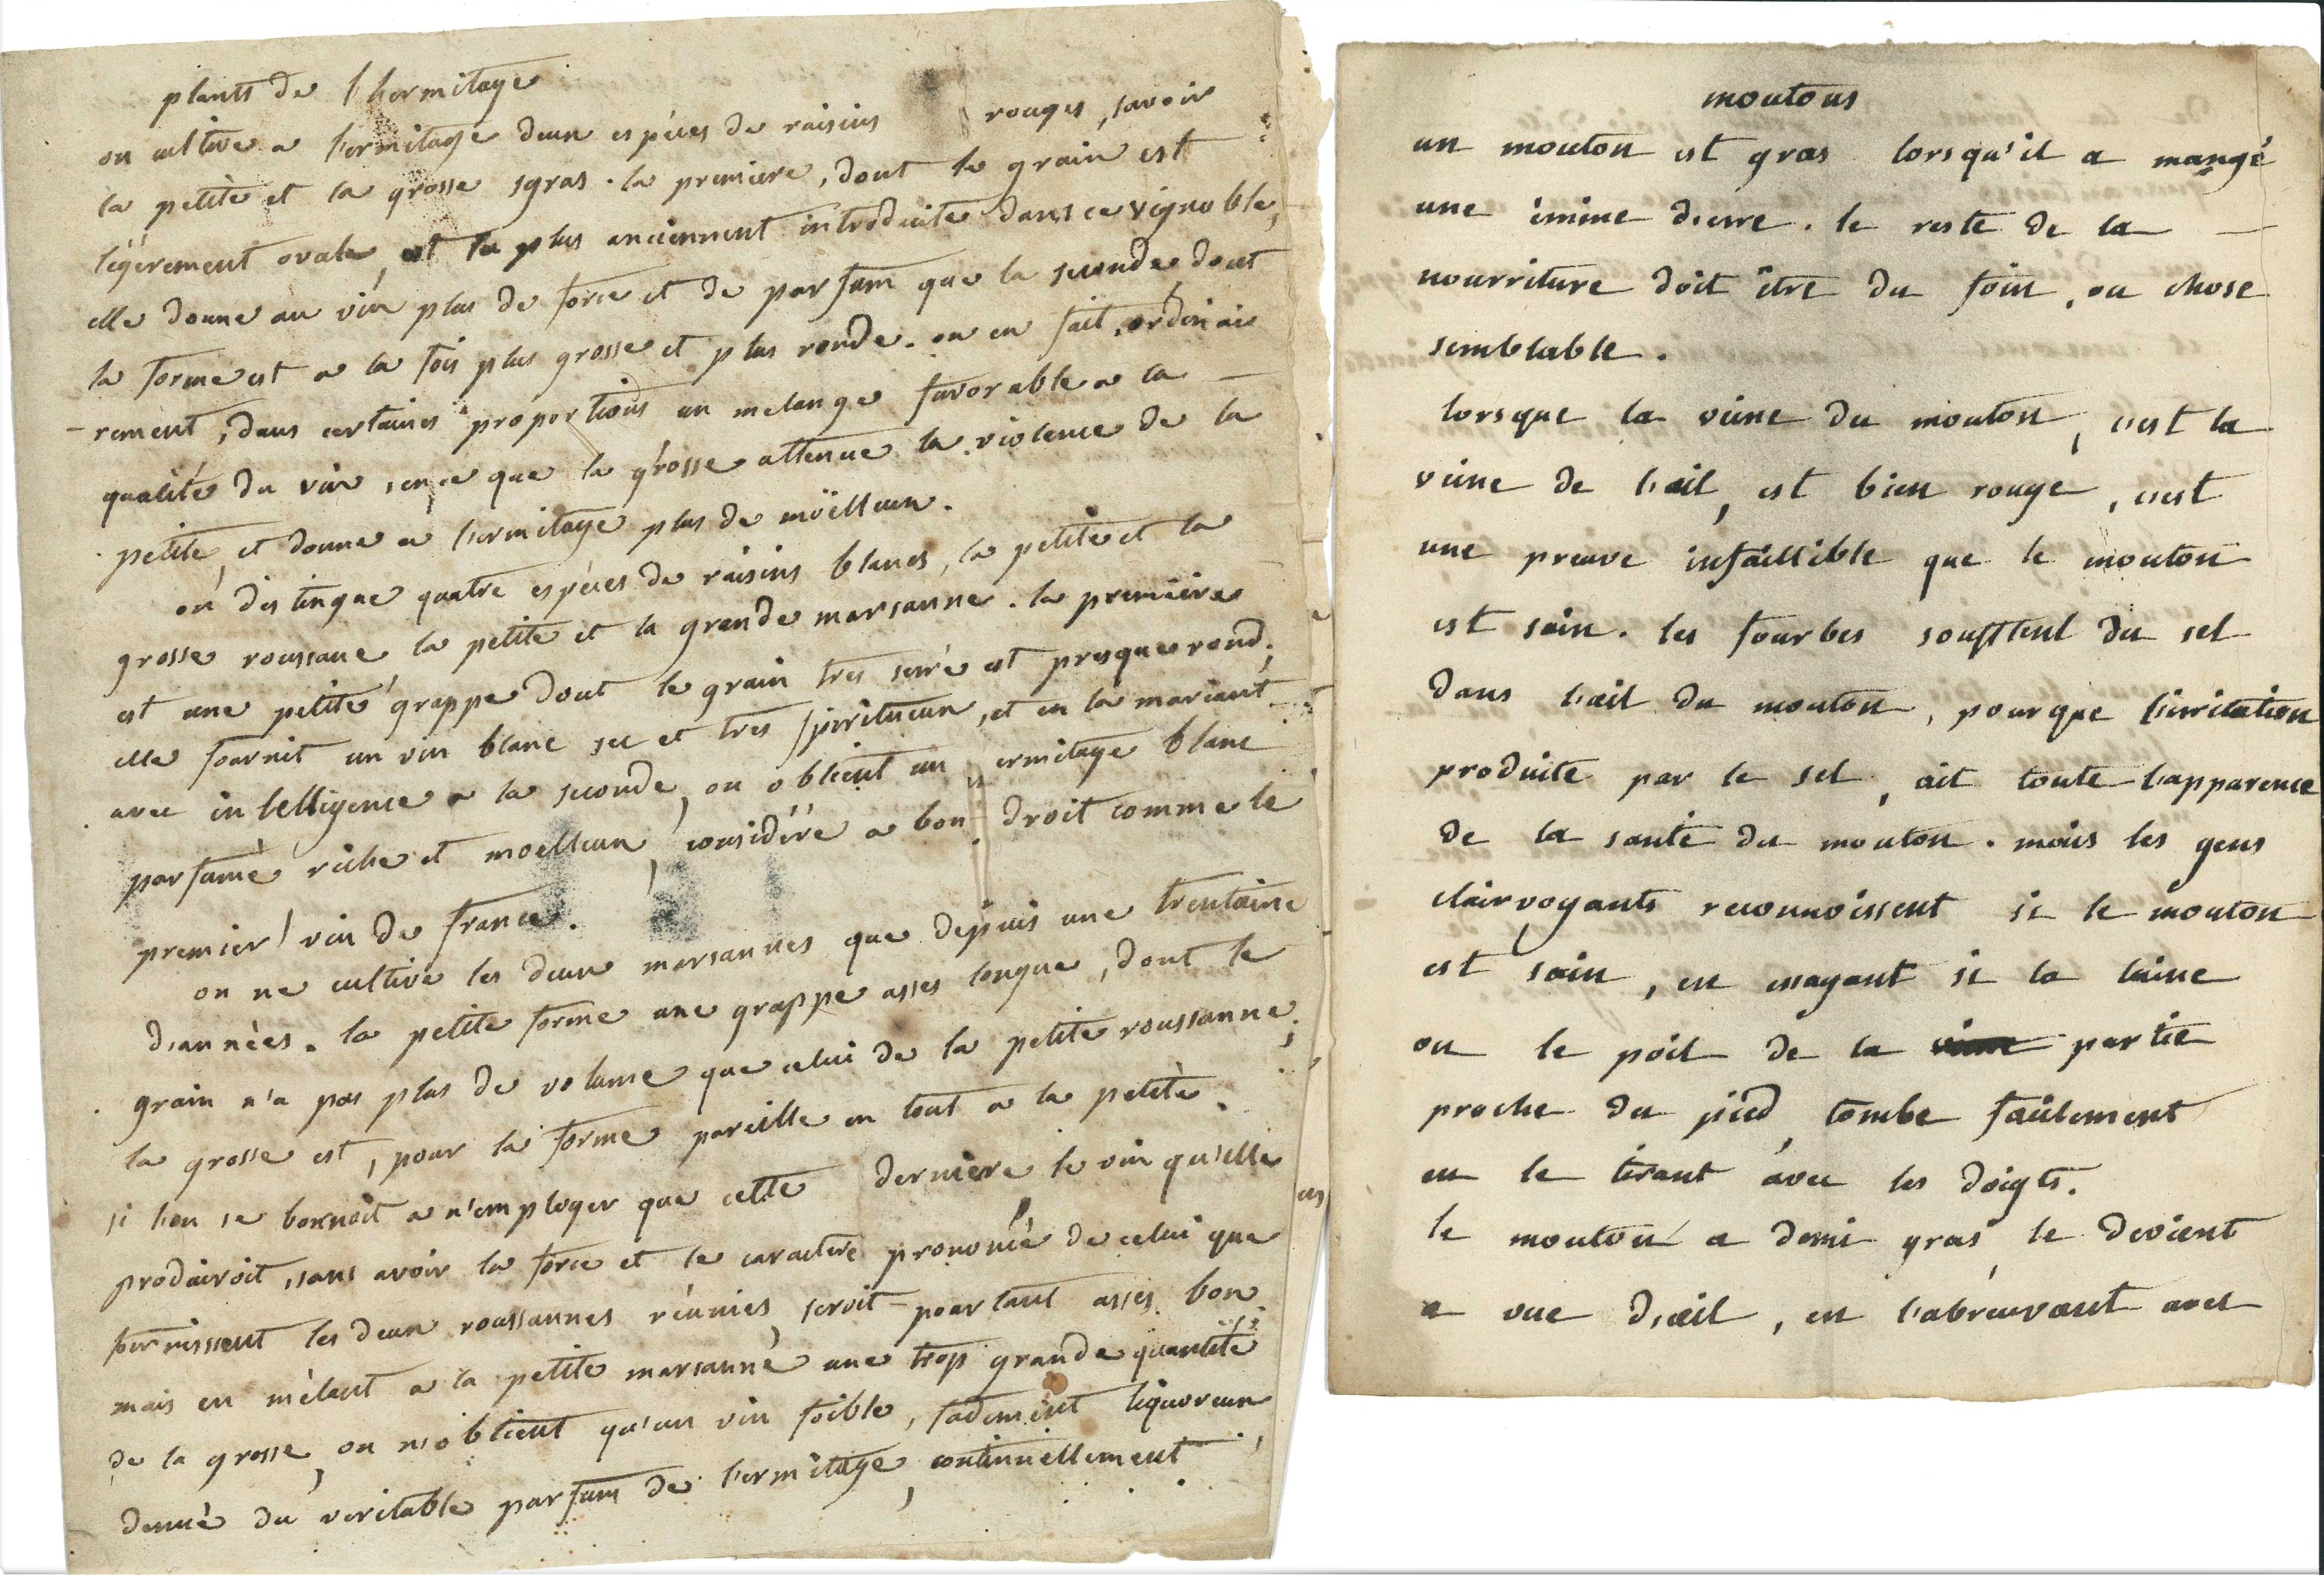 plants de l'hermitage
on cultive a l'ermitage deux espèces de raisins rouges, savoir
la petite et la grosse syras. la premiere, dont le grain est
légèrement ovale, est la plus anciennement introduite dans ce vignoble,
elle donne au vin plus de force et de parfum que la seconde, dont
la forme est a la fois plus grosse et plus ronde. on en fait, ordinai
-rement, dans certaines proportions un melange favorable a la
qualité du vin, en ce que la grosse attenue la violence de la
petite, et donne a l'ermitage plus de moëlleux.
on distingue quatre espèces de raisins blancs, la petite et la
grosse roussane la petite et la grande marsanne. la premiere
est une petite grappe dont le grain tres serré est presque rond;
elle fournit un vin blanc sec et tres spiritueux, et en la mariant
avec intelligence a la seconde, on obtient un ermitage blanc
parfumé riche et moelleux, considéré a bon droit comme le
premier vin de france.
on ne cultive les deux marsannes que depuis une trentaine
d'années. la petite forme une grappe asses longue, dont le
grain n'a pas plus de volume que celui de la petite roussanne;
la grosse est, pour la forme pareille en tout a la petite.
si l'on se bornoit a n'employer que cette derniere le vin qu'elle
produiroit, sans avoir la force et le caractere prononcé de celui que
fournissent les deux roussannes réunies, seroit pourtant asses bon;
mais en mêlant a la petite marsanne une trop grande quantité
de la grosse, on n'obtient qu'un vin foible, fadement liquoreux,
denué du veritable parfum de l'ermitage, continuellement
moutons
un mouton est gras lorsqu'il a mangé
une émine d'erre. le reste de la
nourriture doit être du foin, ou chose
semblable.
lorsque la veine du mouton, c'est la
veine de l'œil, est bien rouge, c'est
une preuve infaillible que le mouton
est sain. les fourbes soufflent du sel
dans l'œil du mouton, pour que l'irritation
produite par le sel, ait toute l'apparence
de la santé du mouton. mais les gens
clairvoyants reconnoissent si le mouton
est sain, en essayant si la laine
ou le poil de la partie
proche du pied, tombe facilement
en le tirant avec les doigts.
le mouton a demi gras, le devient
a vue d'œil, en l'abreuvant avec